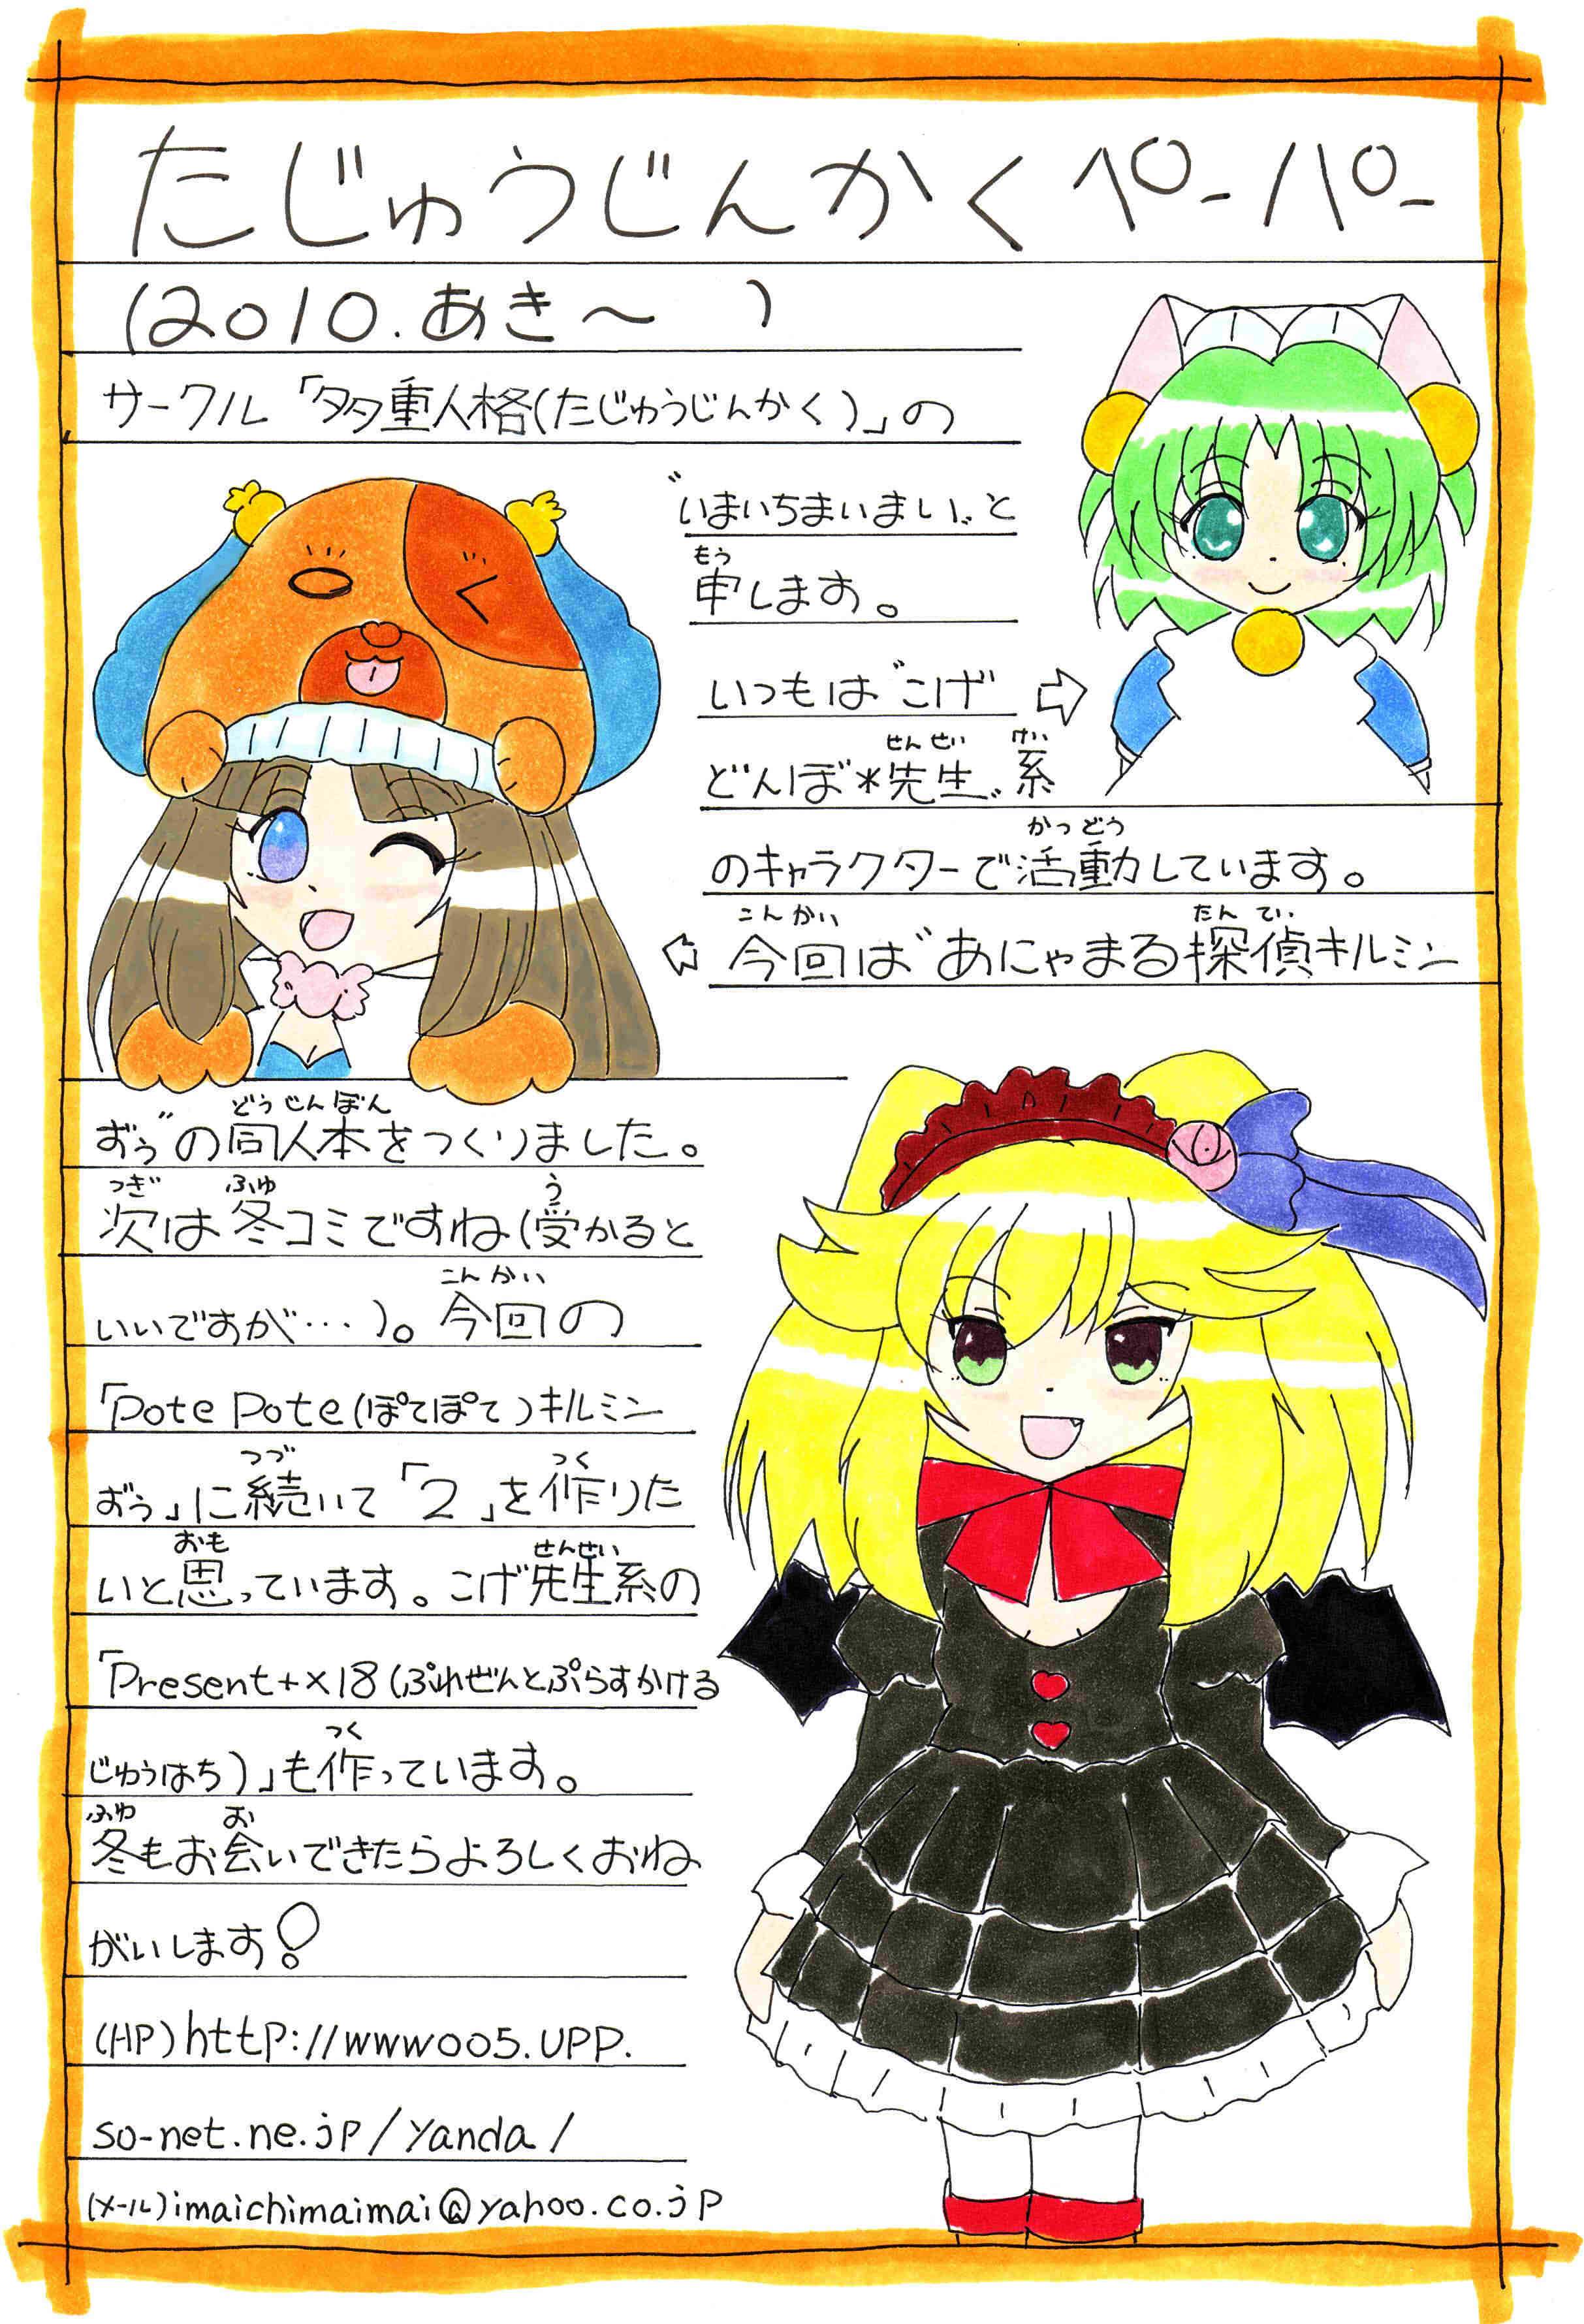 たじゅうじんかくペーパー
(2010.あき〜　)
サークル「多重人格(たじゅうじんかく)」の
"いまいちまいまい"と
もう
申します。
いつもは"こげ
せんせい けい
どんぼ*先生"系
かつどう
のキャラクターで活動しています。
こんかい たんてい
今回は"あにゃまる探偵キルミン
どうじんぼん
ずぅ"の同人本をつくりました。
つぎ ふゆ う
次は冬コミですね(受かると
こんかい
いいですが…)。今回の
「Pote Pote(ぽてぽて)キルミン
つづ つく
ずぅ」に続いて「2」を作りた
おも せんせい
いと思っています。こげ先生系の
「Present+×18(ぷれぜんとぷらすかける
つく
じゅうはち)」も作っています。
ふゆ お
冬もお会いできたらよろしくおね
がいします!
(HP)http://www005.UPP.
so-net.ne.jp/yanda/
(メール)imaichimaimai@yahoo.co.jp